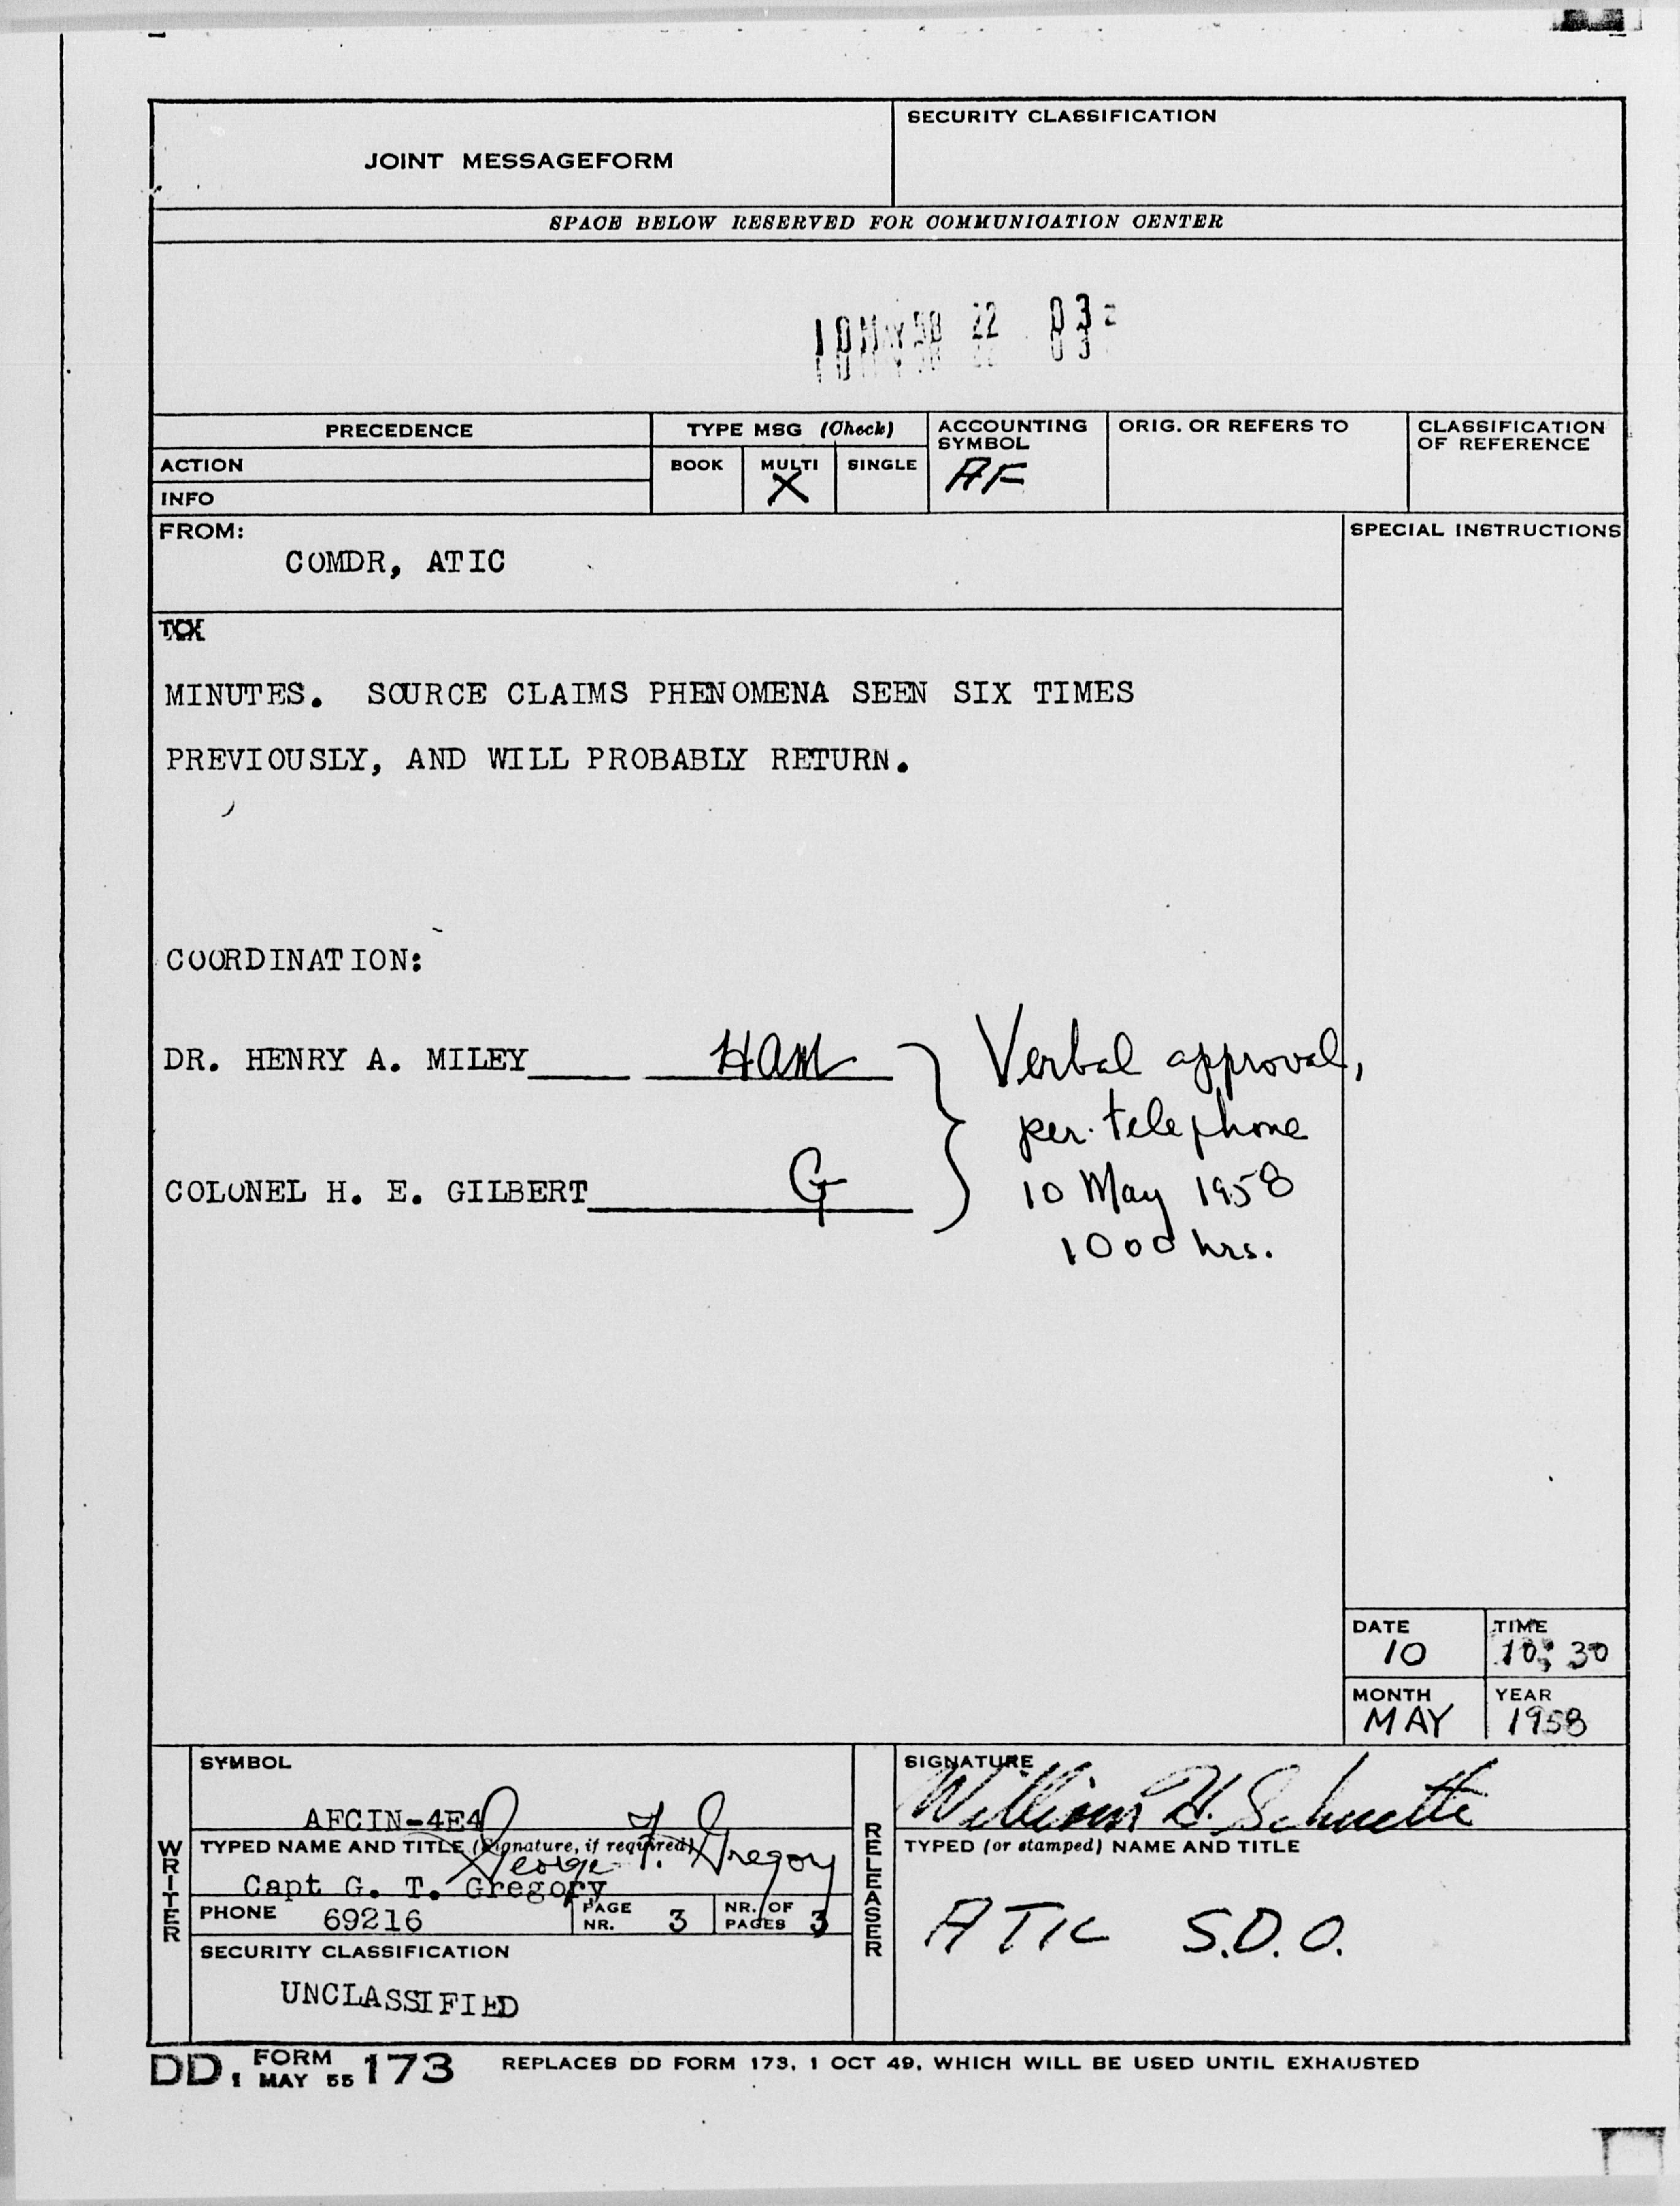 JOINT MESSAGEFORM
SECURITY CLASSIFICATION
SPACE BELOW RESERVED FOR COMMUNICATION CENTER
10 MAY 58 22 03z
PRECEDENCE
TYPE MSG (Check)
ACCOUNTING SYMBOL
ORIG. OR REFERS TO
CLASSIFICATION OF REFERENCE
ACTION
BOOK
MULTI
SINGLE
X
AF
INFO
FROM:
SPECIAL INSTRUCTIONS
COMDR, ATIC
MINUTES. SOURCE CLAIMS PHENOMENA SEEN SIX TIMES
PREVIOUSLY, AND WILL PROBABLY RETURN.
COORDINATION:
DR. HENRY A. MILEY HAM
COLONEL H. E. GILBERT G
Verbal approval,
per telephone
10 May 1958
1000 hrs.
DATE
10
TIME
10:30
MONTH
MAY
YEAR
1958
WRITER
SYMBOL
AFCIN-4E4
TYPED NAME AND TITLE (Signature, if required)
George T. Gregory
Capt G. T. Gregory
PHONE 69216
PAGE NR. 3
NR. OF PAGES 3
SECURITY CLASSIFICATION
UNCLASSIFIED
RELEASER
SIGNATURE
William H. Schuette
TYPED (or stamped) NAME AND TITLE
ATIC S.D.O.
DD, FORM 1 MAY 55 173 REPLACES DD FORM 173, 1 OCT 49, WHICH WILL BE USED UNTIL EXHAUSTED